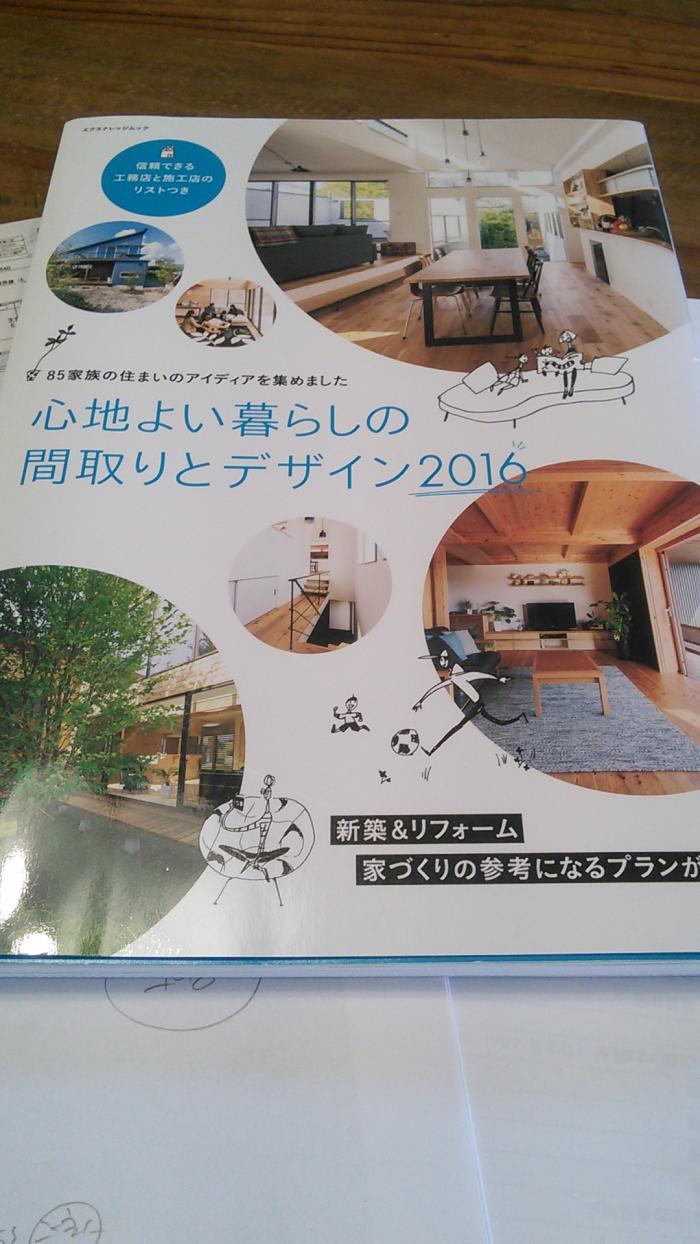 エクスナレッジムック
信頼できる
工務店と施工店の
リストつき
85家族の住まいのアイディアを集めました
心地よい暮らしの
間取りとデザイン2016
新築&リフォーム
家づくりの参考になるプランが